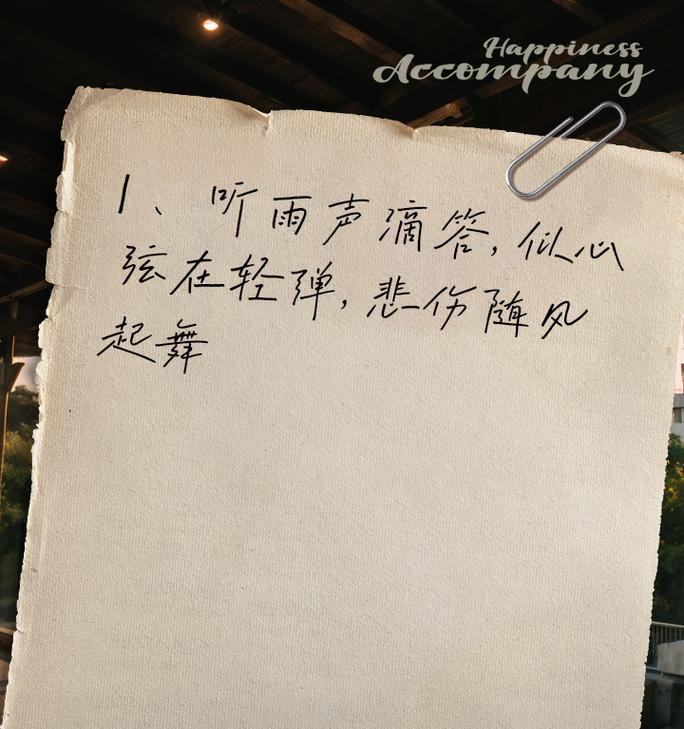 Happiness
Accompany
1、听雨声滴答,似心
弦在轻弹,悲伤随风
起舞